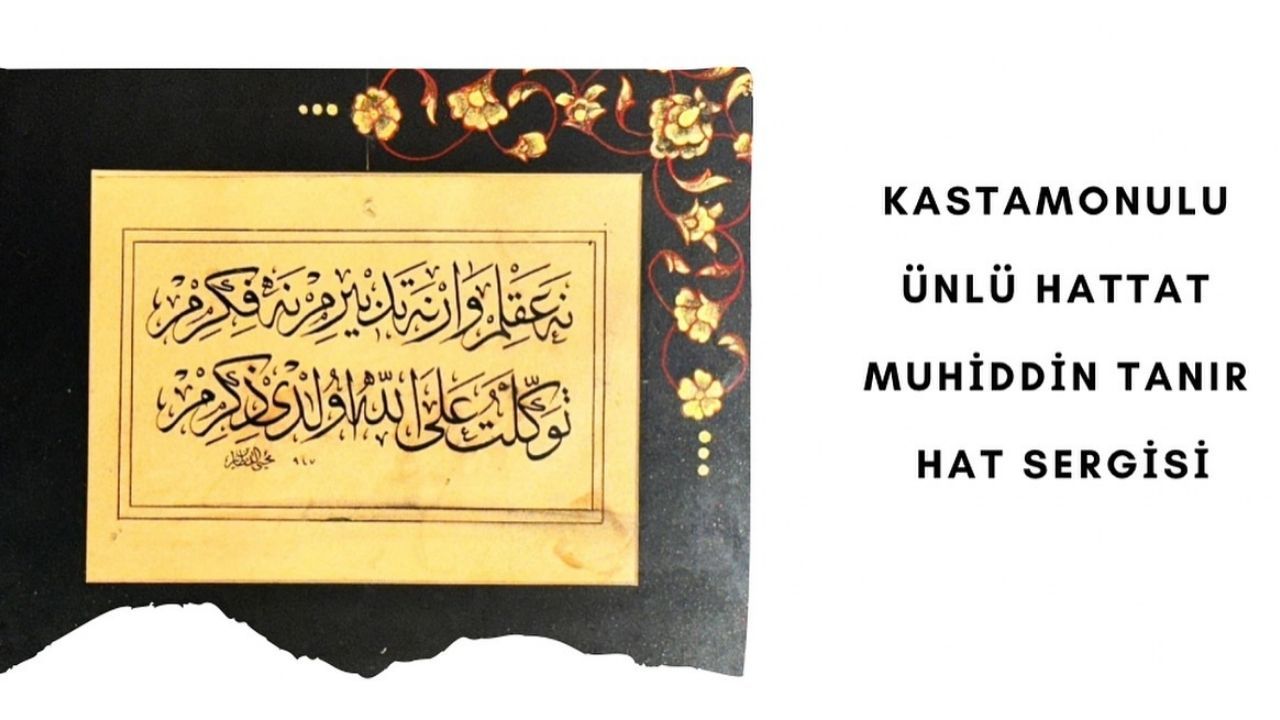 نه عقلم وار نه تدبیرم نه فکرم
توكّلت على الله اولدی ذکرم
KASTAMONULU
ÜNLÜ HATTAT
MUHİDDİN TANIR
HAT SERGİSİ